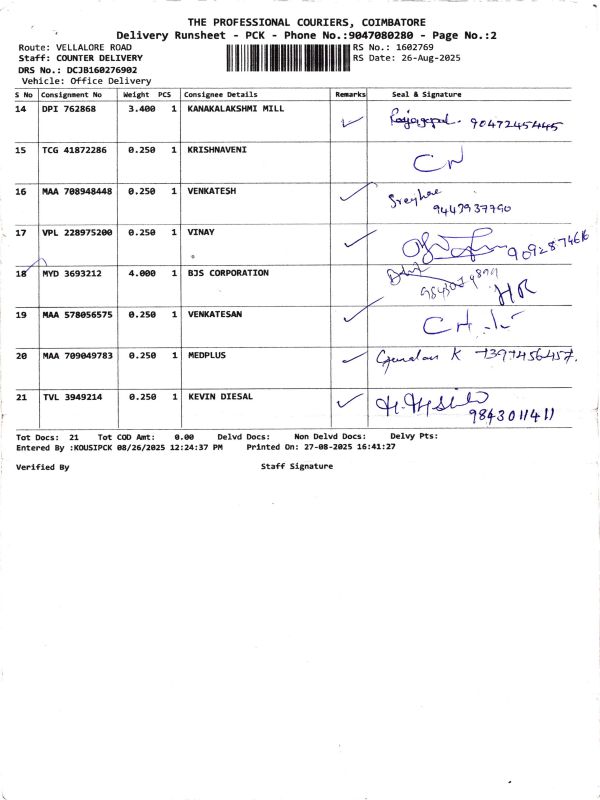 THE PROFESSIONAL COURIERS, COIMBATORE
Delivery Runsheet - PCK - Phone No.:9047080280 - Page No.:2
Route: VELLALORE ROAD RS No.: 1602769
Staff: COUNTER DELIVERY RS Date: 26-Aug-2025
DRS No.: DCJB160276902
Vehicle: Office Delivery
S No Consignment No Weight PCS Consignee Details Remarks Seal & Signature
14 DPI 762868 3.400 1 KANAKALAKSHMI MILL Rajagopal. 9047245445
15 TCG 41872286 0.250 1 KRISHNAVENI
16 MAA 708948448 0.250 1 VENKATESH 9443937790
17 VPL 228975200 0.250 1 VINAY
18 MYD 3693212 4.000 1 BJS CORPORATION HR
19 MAA 578056575 0.250 1 VENKATESAN
20 MAA 709049783 0.250 1 MEDPLUS K
21 TVL 3949214 0.250 1 KEVIN DIESAL 9843011411
Tot Docs: 21 Tot COD Amt: 0.00 Delvd Docs: Non Delvd Docs: Delvy Pts:
Entered By :KOUSIPCK 08/26/2025 12:24:37 PM Printed On: 27-08-2025 16:41:27
Verified By Staff Signature